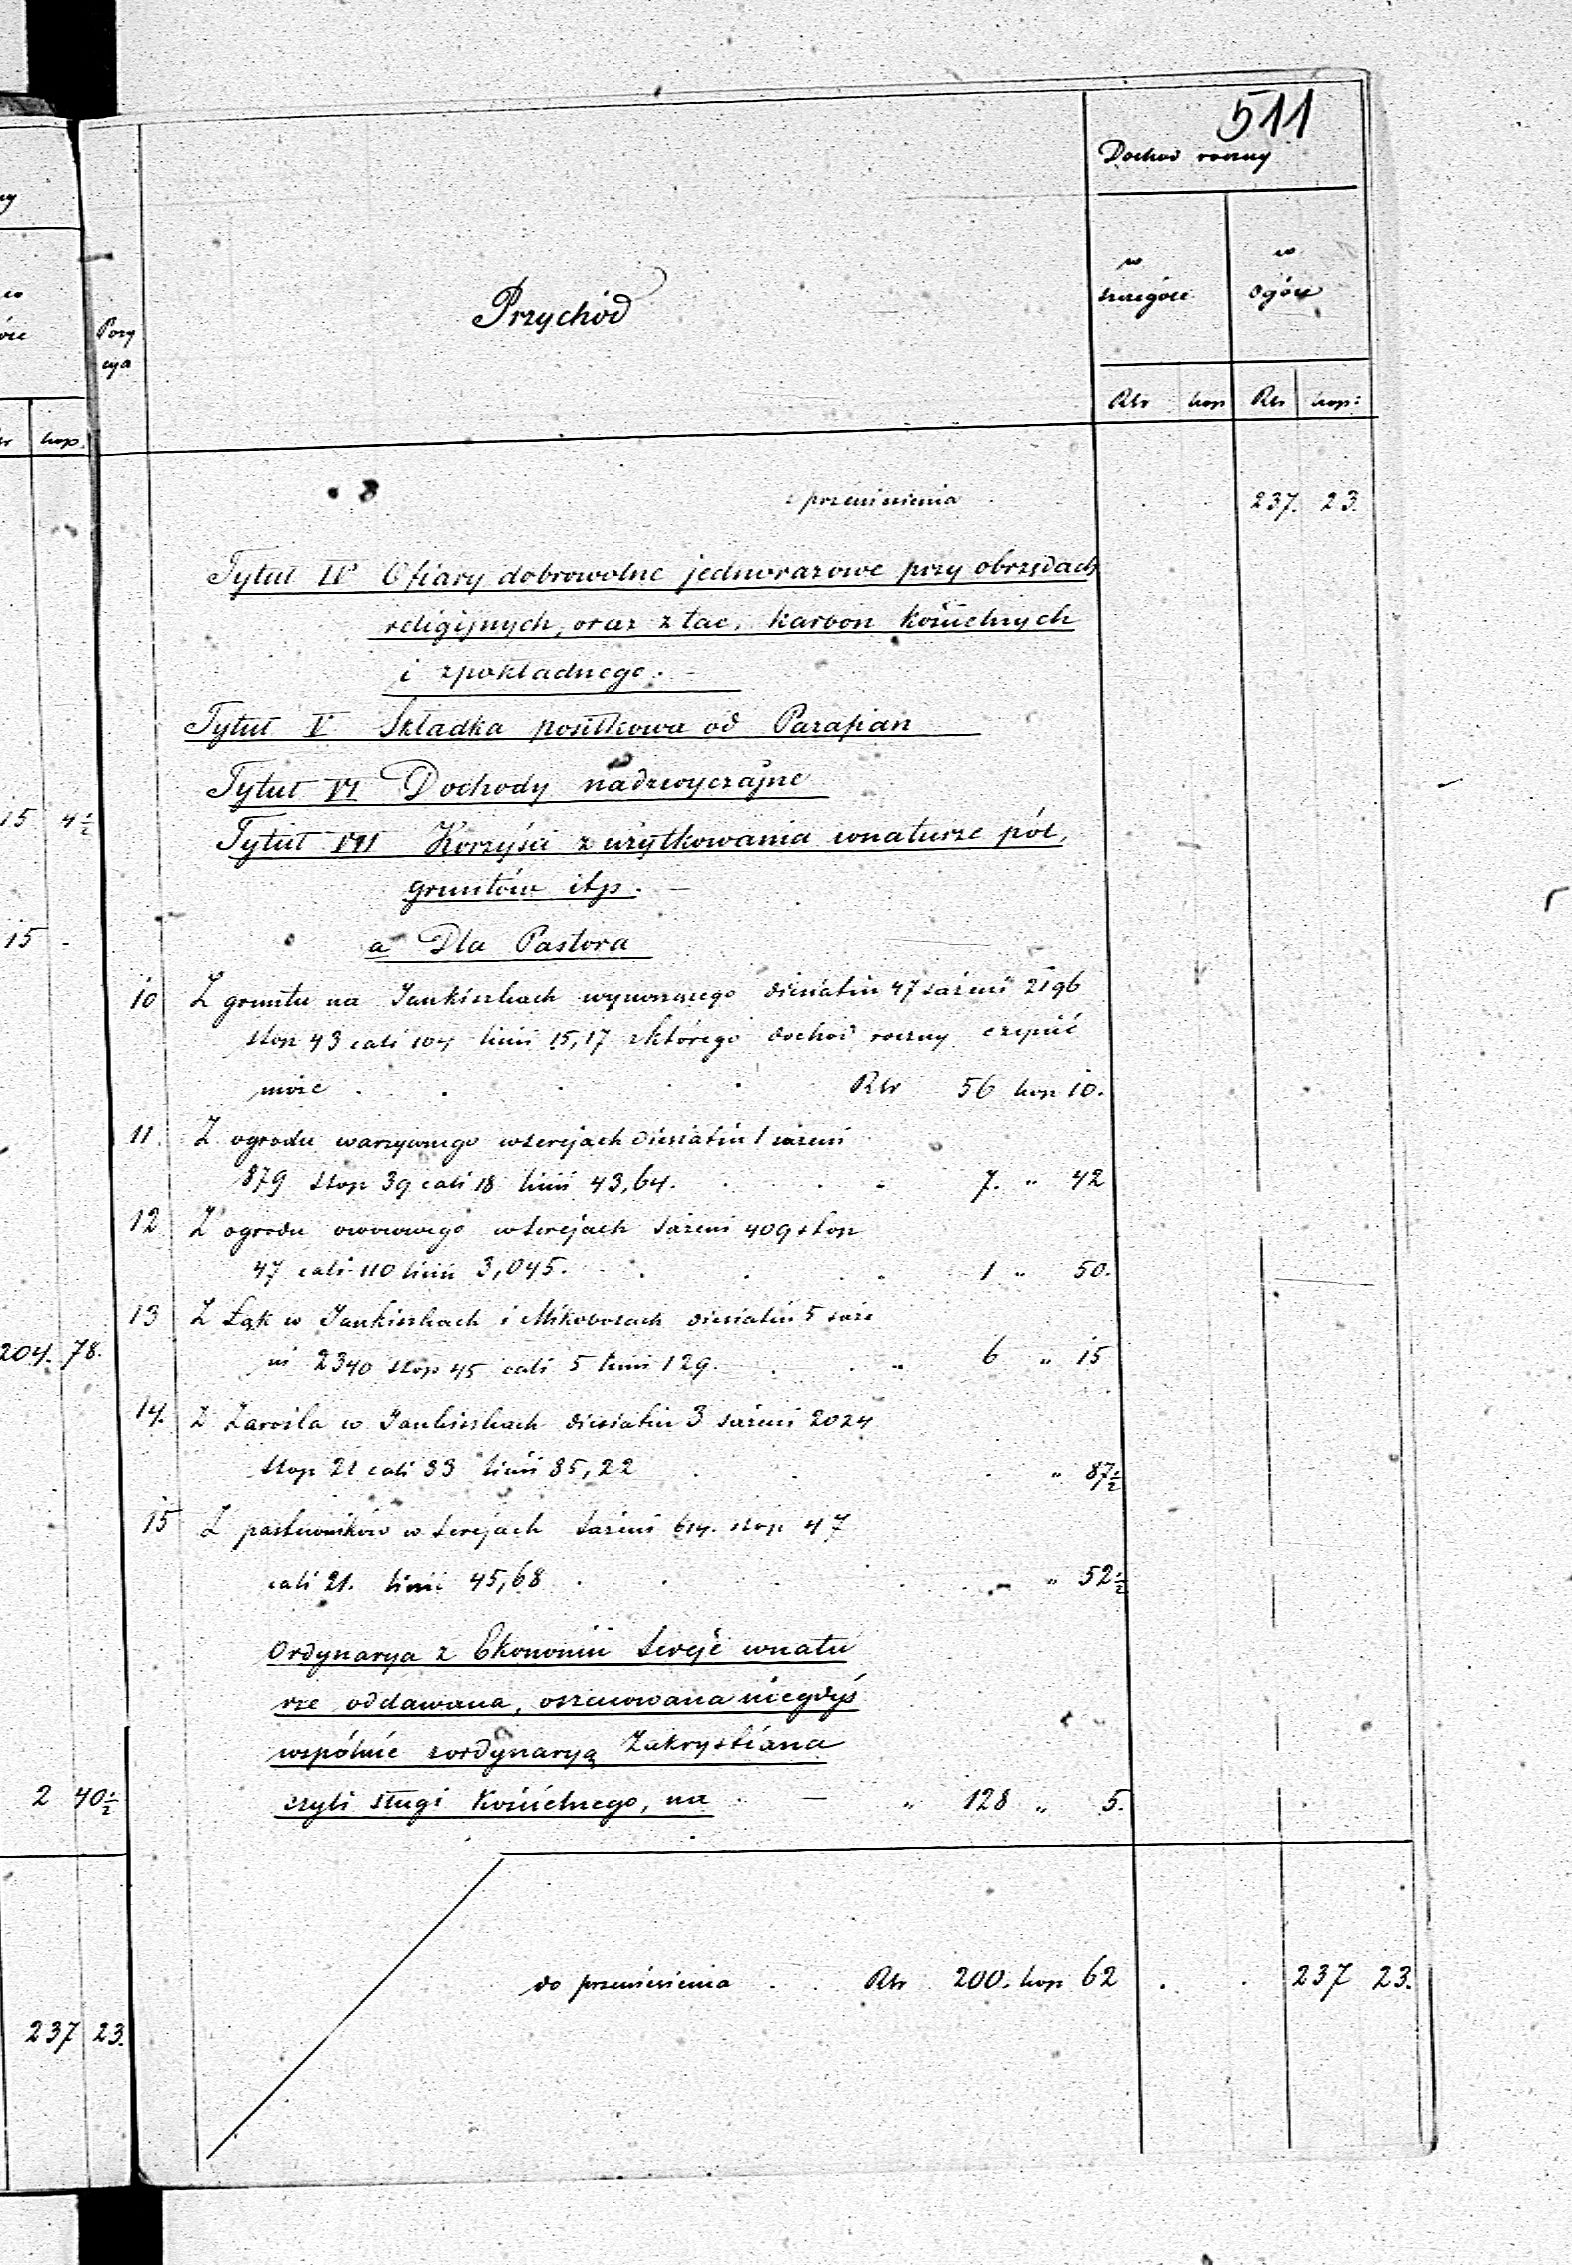 511
Dochod roczny
w
w
szczegóле
ogóle
Pozy
cya
Przychód
Rsr kop Rsr kop:
z przeniesienia 237. 23.
Tytuł IV Ofiary dobrowolne jednorazowe przy obrzędach
religijnych, oraz z tac, karbon Kościelnych
i zpokładnego. -
Tytuł V Składka posiłkowa od Parafian
Tytuł VI Dochody nadzwyczajne
Tytuł VII Korzyści z użytkowania wnaturze pól,
gruntów itp. -
a Dla Pastora
10 Z gruntu na Jankiszkach wynoszącego diesiatin 47 sażeni 2196
stop 43 cali 104 linii 15,17 zktórego dochod roczny czynić
może . . . . . Rsr 56 kop 10.
11. Z ogrodu warzywnego wSerejach diesiatin 1 sażeni
879 stop 39 cali 18 linii 43,64. . . " 7. " 42
12 Z ogrodu owocowego wSerejach sażeni 409 stop
47 cali 110 linii 3,045. . . . . " 1 " 50.
13 Z Łąk w Jankiszkach i Mikabolach diesiatin 5 saże
ni 2340 stop 45 cali 5 linii 129. . . " 6 " 15
14. Z Zarośla w Jankiszkach diesiatin 3 sażeni 2024
stop 21 cali 33 linii 85,22 . . . " 87½
15 Z pastewników w Serejach sażeni 614. stop 47
cali 21. linii 45,68 . . . . . " 52½
Ordynarya z Ekonomii Sereje wnatu
rze oddawana, oszacowana niegdyś
wspólnie zordynaryą Zakrystiana
czyli sługi Kościelnego, na . - " 128 " 5.
do przeniesienia . . Rsr 200. kop 62 . . 237 23.
kop.
15 4½
15 -
204. 78.
2 40½
237 23.